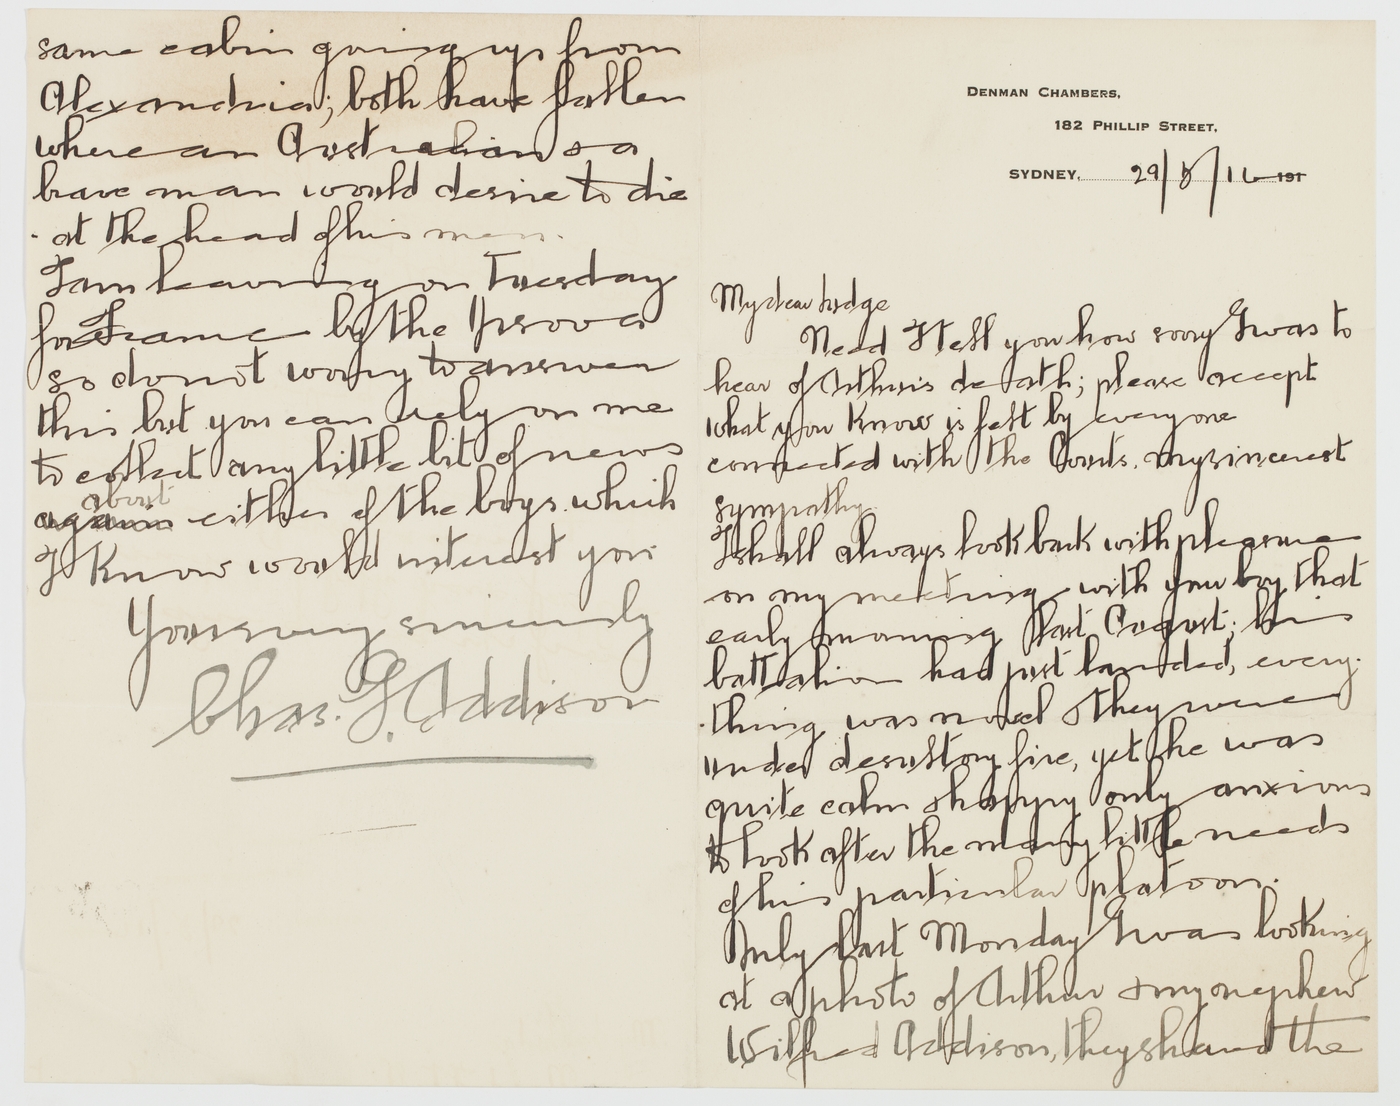 DENMAN CHAMBERS,
182 PHILLIP STREET,
SYDNEY, 29/8/16 191
My dear Judge
Need I tell you how sorry I was to
hear of Arthur's death; please accept
what you know is felt by everyone
connected with the Courts, my sincerest
sympathy.
I shall always look back with pleasure
on my meeting with your boy that
early morning last August; his
battalion had just landed, every-
-thing was novel & they were
under desultory fire, yet he was
quite calm & happy only anxious
to look after the many little needs
of his particular platoon.
Only last Monday I was looking
at a photo of Arthur & my nephew
Wilfred Addison, they shared the
same cabin going up from
Alexandria; both have fallen
where an Australian & a
brave man would desire to die
- at the head of his men.
I am leaving on Tuesday
for France by the
so do not worry to answer
this but you can rely on me
to collect any little bit of news
about
again either of the boys which
I know would interest you
Yours very sincerely
Chas. G. Addison